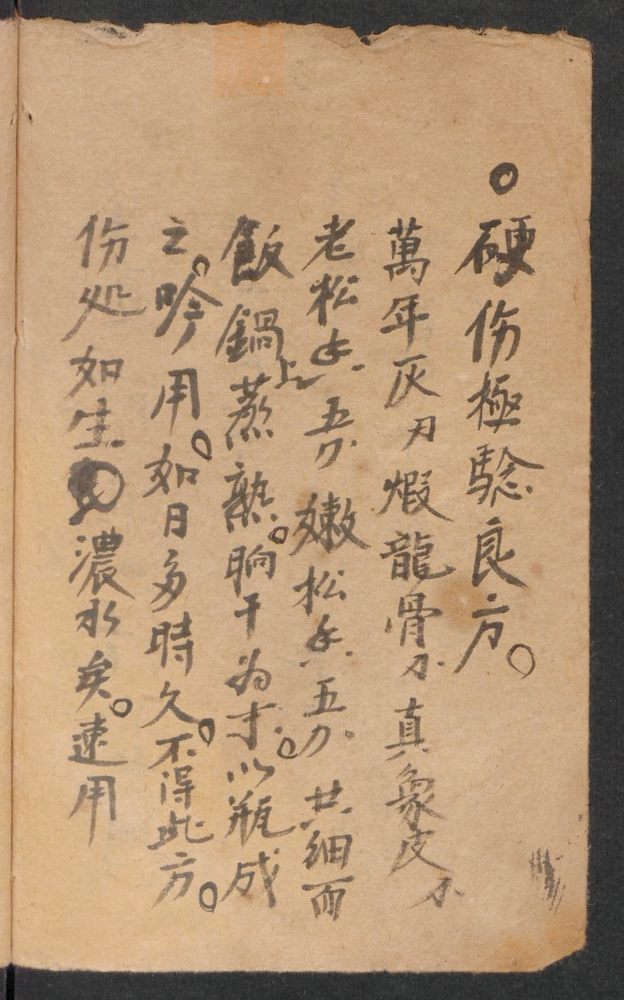 ○硬伤極騐良方○
萬年灰 煅龍骨 真象皮
老松 五 嫩松 五 共细面
飯鍋上蒸熟○晌干为 ○以瓶成
之○吟用○如日多時久○不得此方○
伤处如生 濃水矣○速用